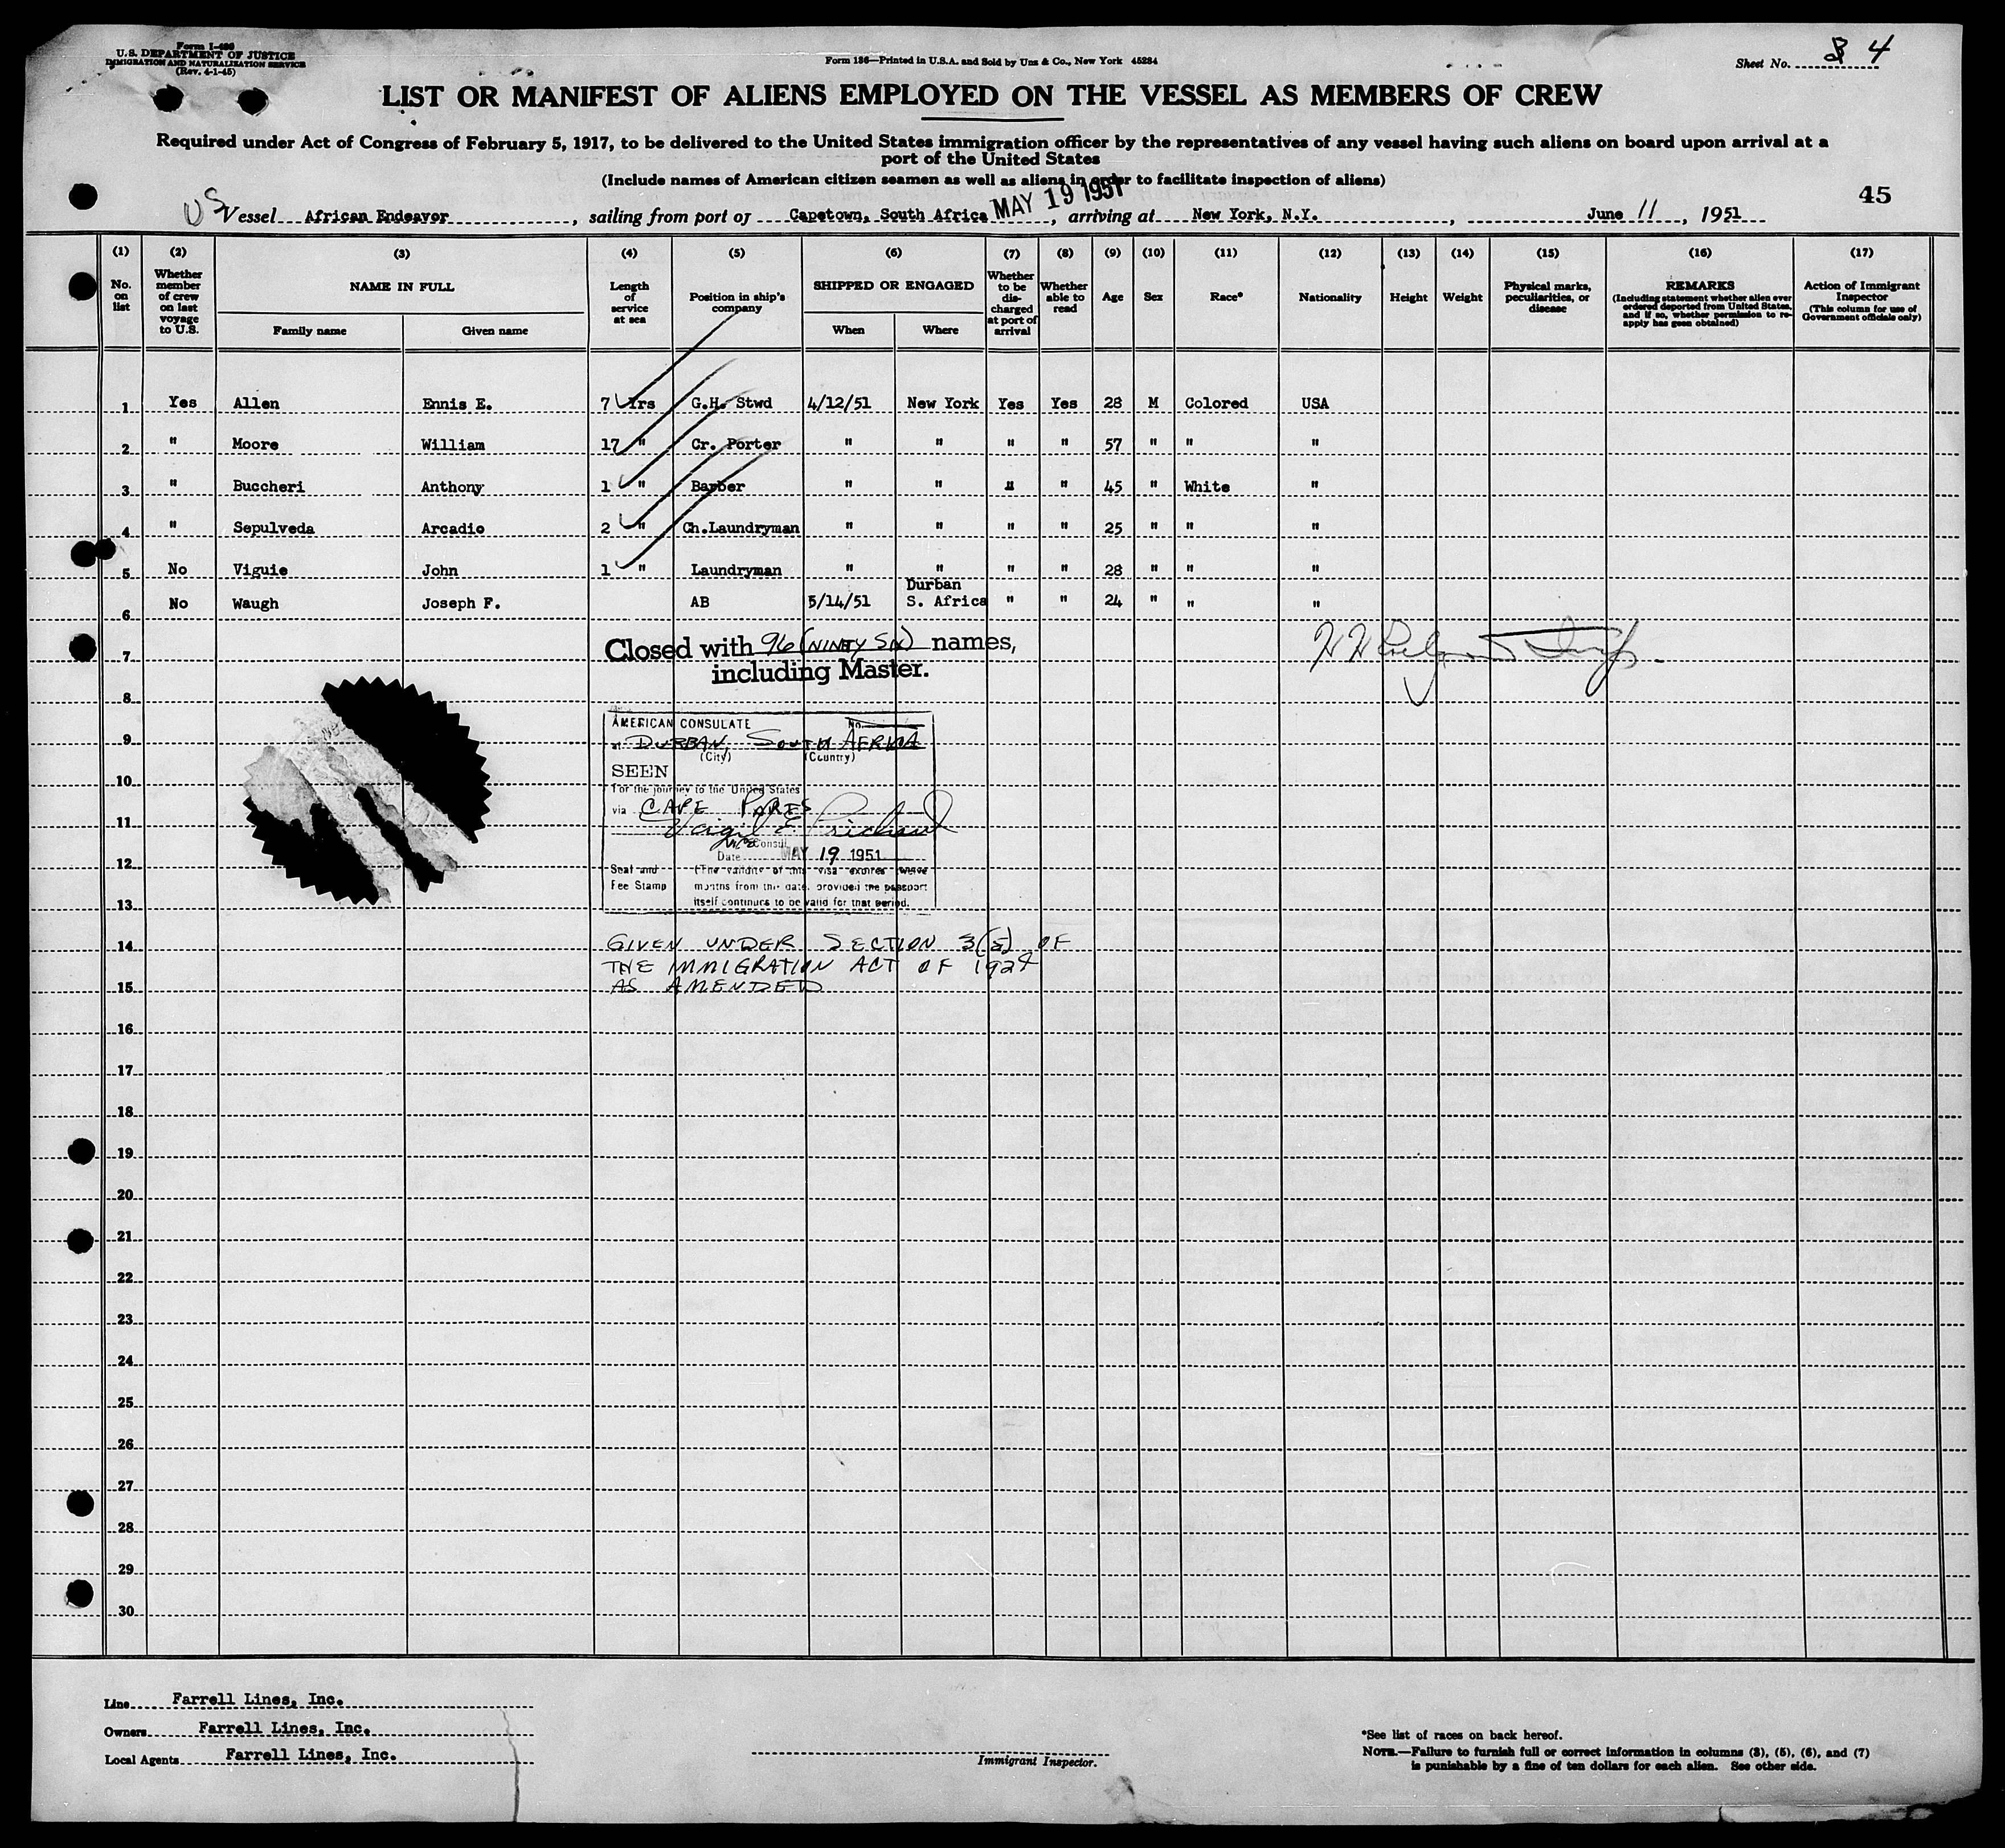 Form I-480
U.S. DEPARTMENT OF JUSTICE
IMMIGRATION AND NATURALIZATION SERVICE
(Rev. 4-1-45)
Form 186—Printed in U.S.A. and Sold by Unz & Co., New York 45284
Sheet No. 4
LIST OR MANIFEST OF ALIENS EMPLOYED ON THE VESSEL AS MEMBERS OF CREW
Required under Act of Congress of February 5, 1917, to be delivered to the United States immigration officer by the representatives of any vessel having such aliens on board upon arrival at a
port of the United States
(Include names of American citizen seamen as well as aliens in order to facilitate inspection of aliens)
45
US Vessel African Endeavor, sailing from port of Capetown, South Africa MAY 19 1951, arriving at New York, N.Y., June 11, 1951
(1) (2) (3) (4) (5) (6) (7) (8) (9) (10) (11) (12) (13) (14) (15) (16) (17)
No. on list
Whether member of crew on last voyage to U.S.
NAME IN FULL
Family name
Given name
Length of service at sea
Position in ship's company
SHIPPED OR ENGAGED
When
Where
Whether to be discharged at port of arrival
Whether able to read
Age
Sex
Race*
Nationality
Height
Weight
Physical marks, peculiarities, or disease
REMARKS
(Including statement whether alien ever ordered deported from United States, and if so, whether permission to re-apply has geen obtained)
Action of Immigrant Inspector
(This column for use of Government officials only)
1 Yes Allen Ennis E. 7 Yrs G.H. Stwd 4/12/51 New York Yes Yes 28 M Colored USA
2 " Moore William 17 " Cr. Porter " " " " 57 " " "
3 " Buccheri Anthony 1 " Barber " " " " 45 " White "
4 " Sepulveda Arcadio 2 " Ch.Laundryman " " " " 25 " " "
5 No Viguie John 1 " Laundryman " " " " 28 " " "
6 No Waugh Joseph F. AB 5/14/51 Durban S. Africa " " 24 " " "
7
Closed with 96 (NINETY SIX) names,
including Master.
8
9
10
11
12
13
AMERICAN CONSULATE No.
at DURBAN, SOUTH AFRICA
(City) (Country)
SEEN
For the journey to the United States
via CAPE PORTS
Virgil E. Prichard
Vice Consul
Date MAY 19 1951
Seal and Fee Stamp
(The validity of this visa expires twelve
months from this date, provided the passport
itself continues to be valid for that period.
14
15
GIVEN UNDER SECTION 3(5) OF
THE IMMIGRATION ACT OF 1924
AS AMENDED
16
17
18
19
20
21
22
23
24
25
26
27
28
29
30
Line Farrell Lines, Inc.
Owners Farrell Lines, Inc.
Local Agents Farrell Lines, Inc.
Immigrant Inspector.
*See list of races on back hereof.
NOTE.—Failure to furnish full or correct information in columns (3), (5), (6), and (7)
is punishable by a fine of ten dollars for each alien. See other side.